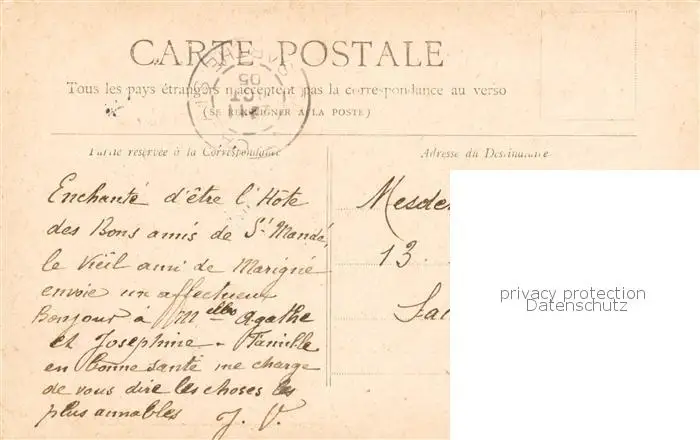 CARTE POSTALE
Tous les pays étrangers n'acceptent pas la correspondance au verso
(SE RENSEIGNER A LA POSTE)
05
Partie réservée à la Correspondance
Adresse du Destinataire
Enchanté d'être l'Hôte
des Bons amis de St Mandé,
le vieil ami de Marigné
envoie un affectueux
Bonjour a Melles Agathe
et Josephine - Famille
en bonne santé me charge
de vous dire les choses les
plus aimables J. V.
Mesde
13.
privacy protection
Datenschutz